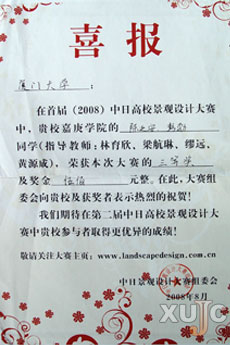 喜报
厦门大学：
在首届（2008）中日高校景观设计大赛
中，贵校嘉庚学院的
同学（指导教师：林育欣、梁航琳、缪远、
黄源成），荣获本次大赛的 三等奖
及奖金 伍佰 元整。在此，大赛组
委会向贵校及获奖者表示热烈的祝贺！
我们期待在第二届中日高校景观设计大赛
中贵校参与者取得更优异的成绩！
敬请关注大赛主页：www.landscapedesign.com.cn
中日景观设计大赛组委会
2008年8月
XUJC